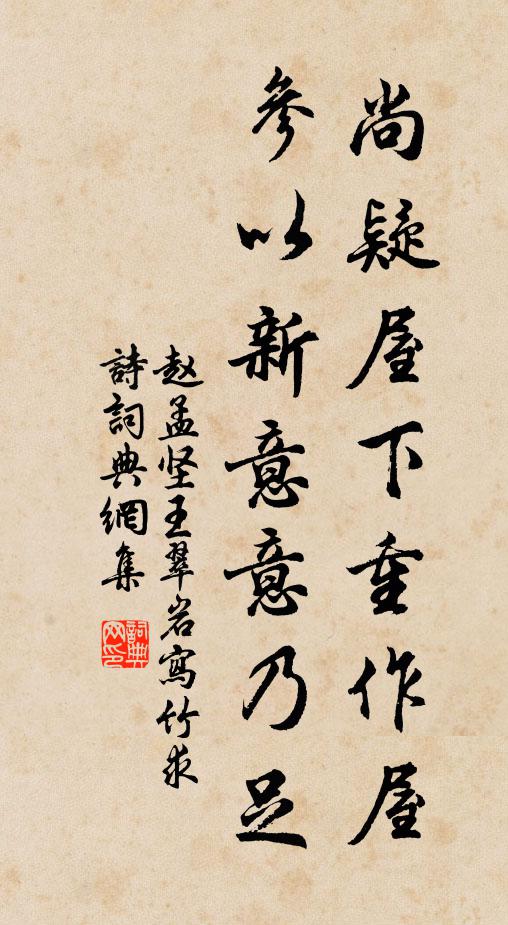 尚疑屋下重作屋
參以新意意乃足
赵孟坚王翠岩寫竹求
詩詞典網集
詞典
网印